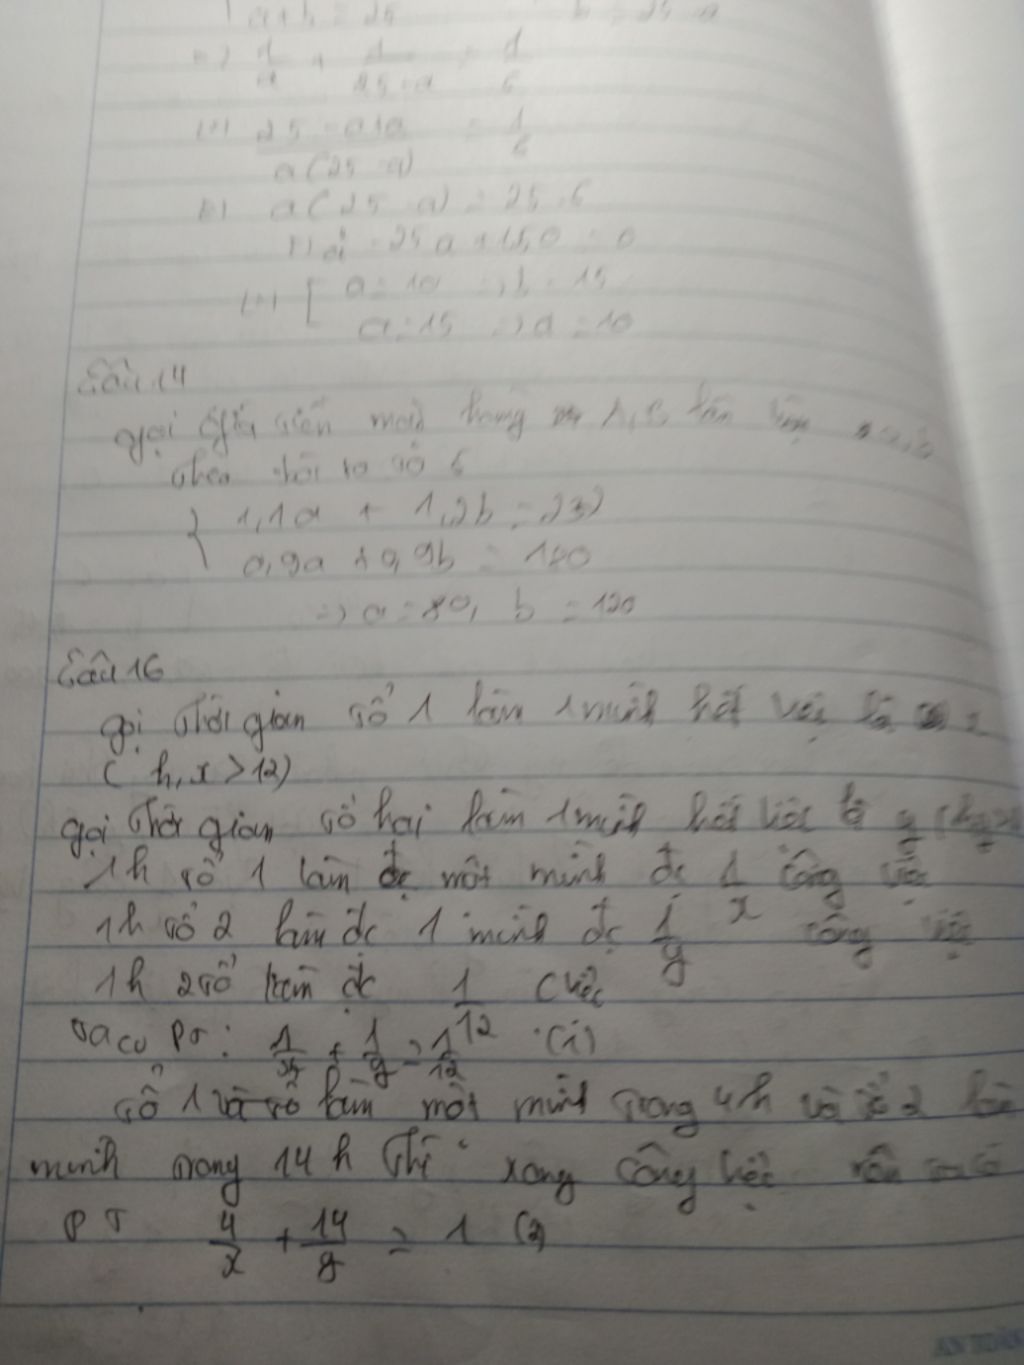 a+b = 25 b = 25 - a
=> 1/a + 1/(25-a) = 1/6
<=> (25-a+a)/(a(25-a)) = 1/6
a(25-a) = 25.6
a² - 25a + 150 = 0
<=> [ a = 10 => b = 15
a = 15 => a = 10
Câu 14
gọi giá tiền mỗi hàng A, B lần lượt a, b
theo
{ 1,1a + 1,2b = 232
0,9a + 0,9b = 180
=> a = 80, b = 120
Câu 16
gọi thời gian tổ 1 làm 1 mình hết việc là x
(h, x > 12)
gọi thời gian tổ hai làm 1 mình hết việc là y
1h tổ 1 làm đc một mình đc 1/x công việc
1h tổ 2 làm đc 1 mình đc 1/y công việc
1h 2 tổ làm đc 1/12 cviệc
Ta có PT: 1/x + 1/y = 1/12 (1)
tổ 1 và tổ làm một mình trong 4h và tổ 2 làm
mình trong 14h thì xong công việc nên ta có
PT 4/x + 14/y = 1 (2)